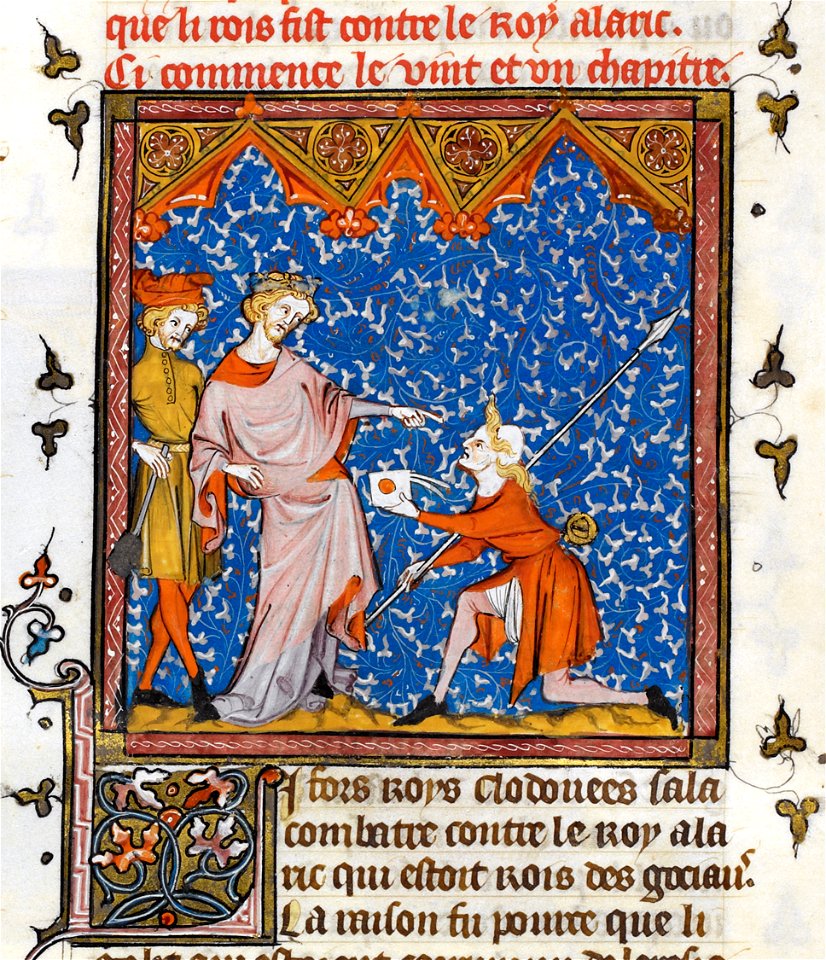 que li rois fist contre le Roy alaric.
Ci commence le vint et vn chapitre.
Li fors roys Clodouees sala
combatre contre le roy ala
ric qui estoit rois des gociaus.
La raison fu pource que li